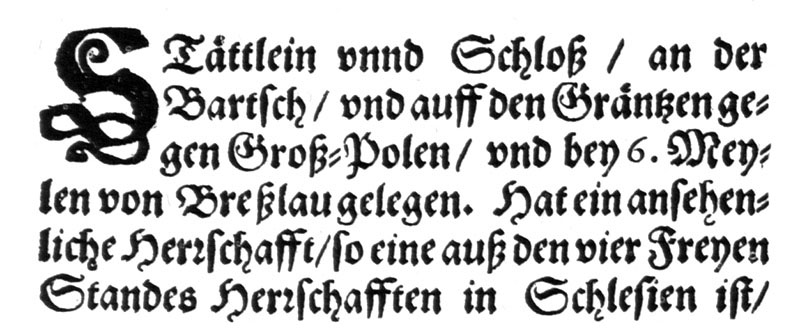 STättlein vnnd Schloß / an der
Bartſch / vnd auff den Gräntzen ge⸗
gen Groß⸗Polen / vnd bey 6. Mey⸗
len von Breßlau gelegen. Hat ein anſehen⸗
liche Herꝛſchafft / ſo eine auß den vier Freyen
Standes Herꝛſchafften in Schleſien iſt /